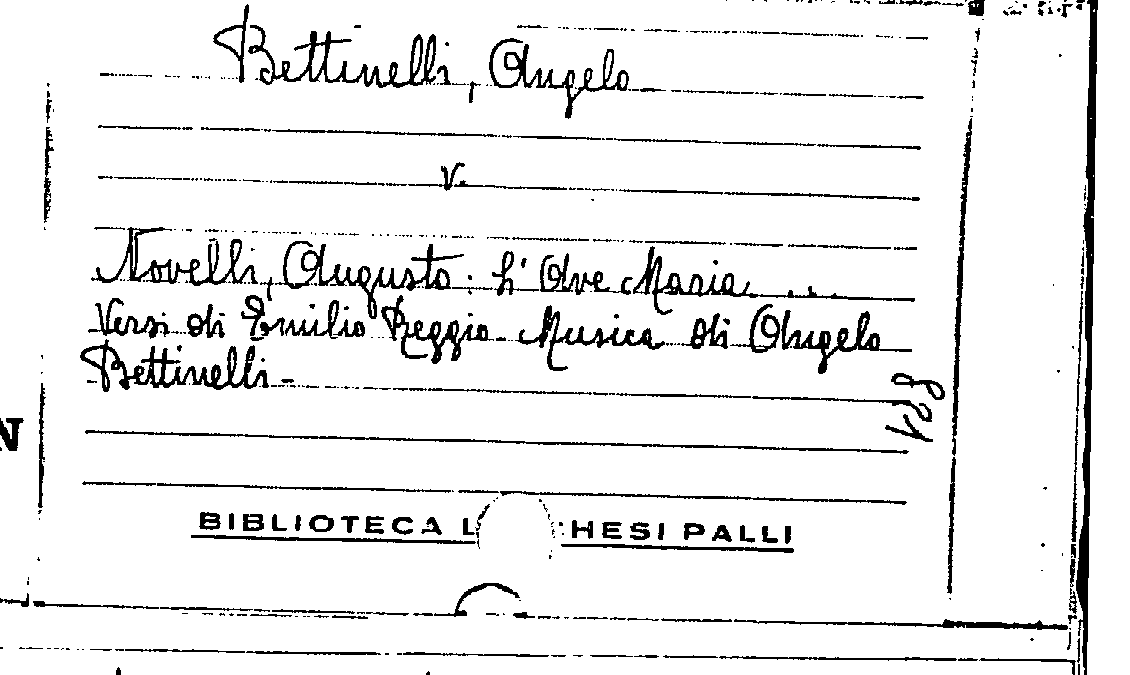 Bettinelli, Angelo
v.
Novelli, Augusto: L'Ave Maria ...
Versi di Emilio Reggio - Musica di Angelo
Bettinelli -
821
N
BIBLIOTECA L HESI PALLI